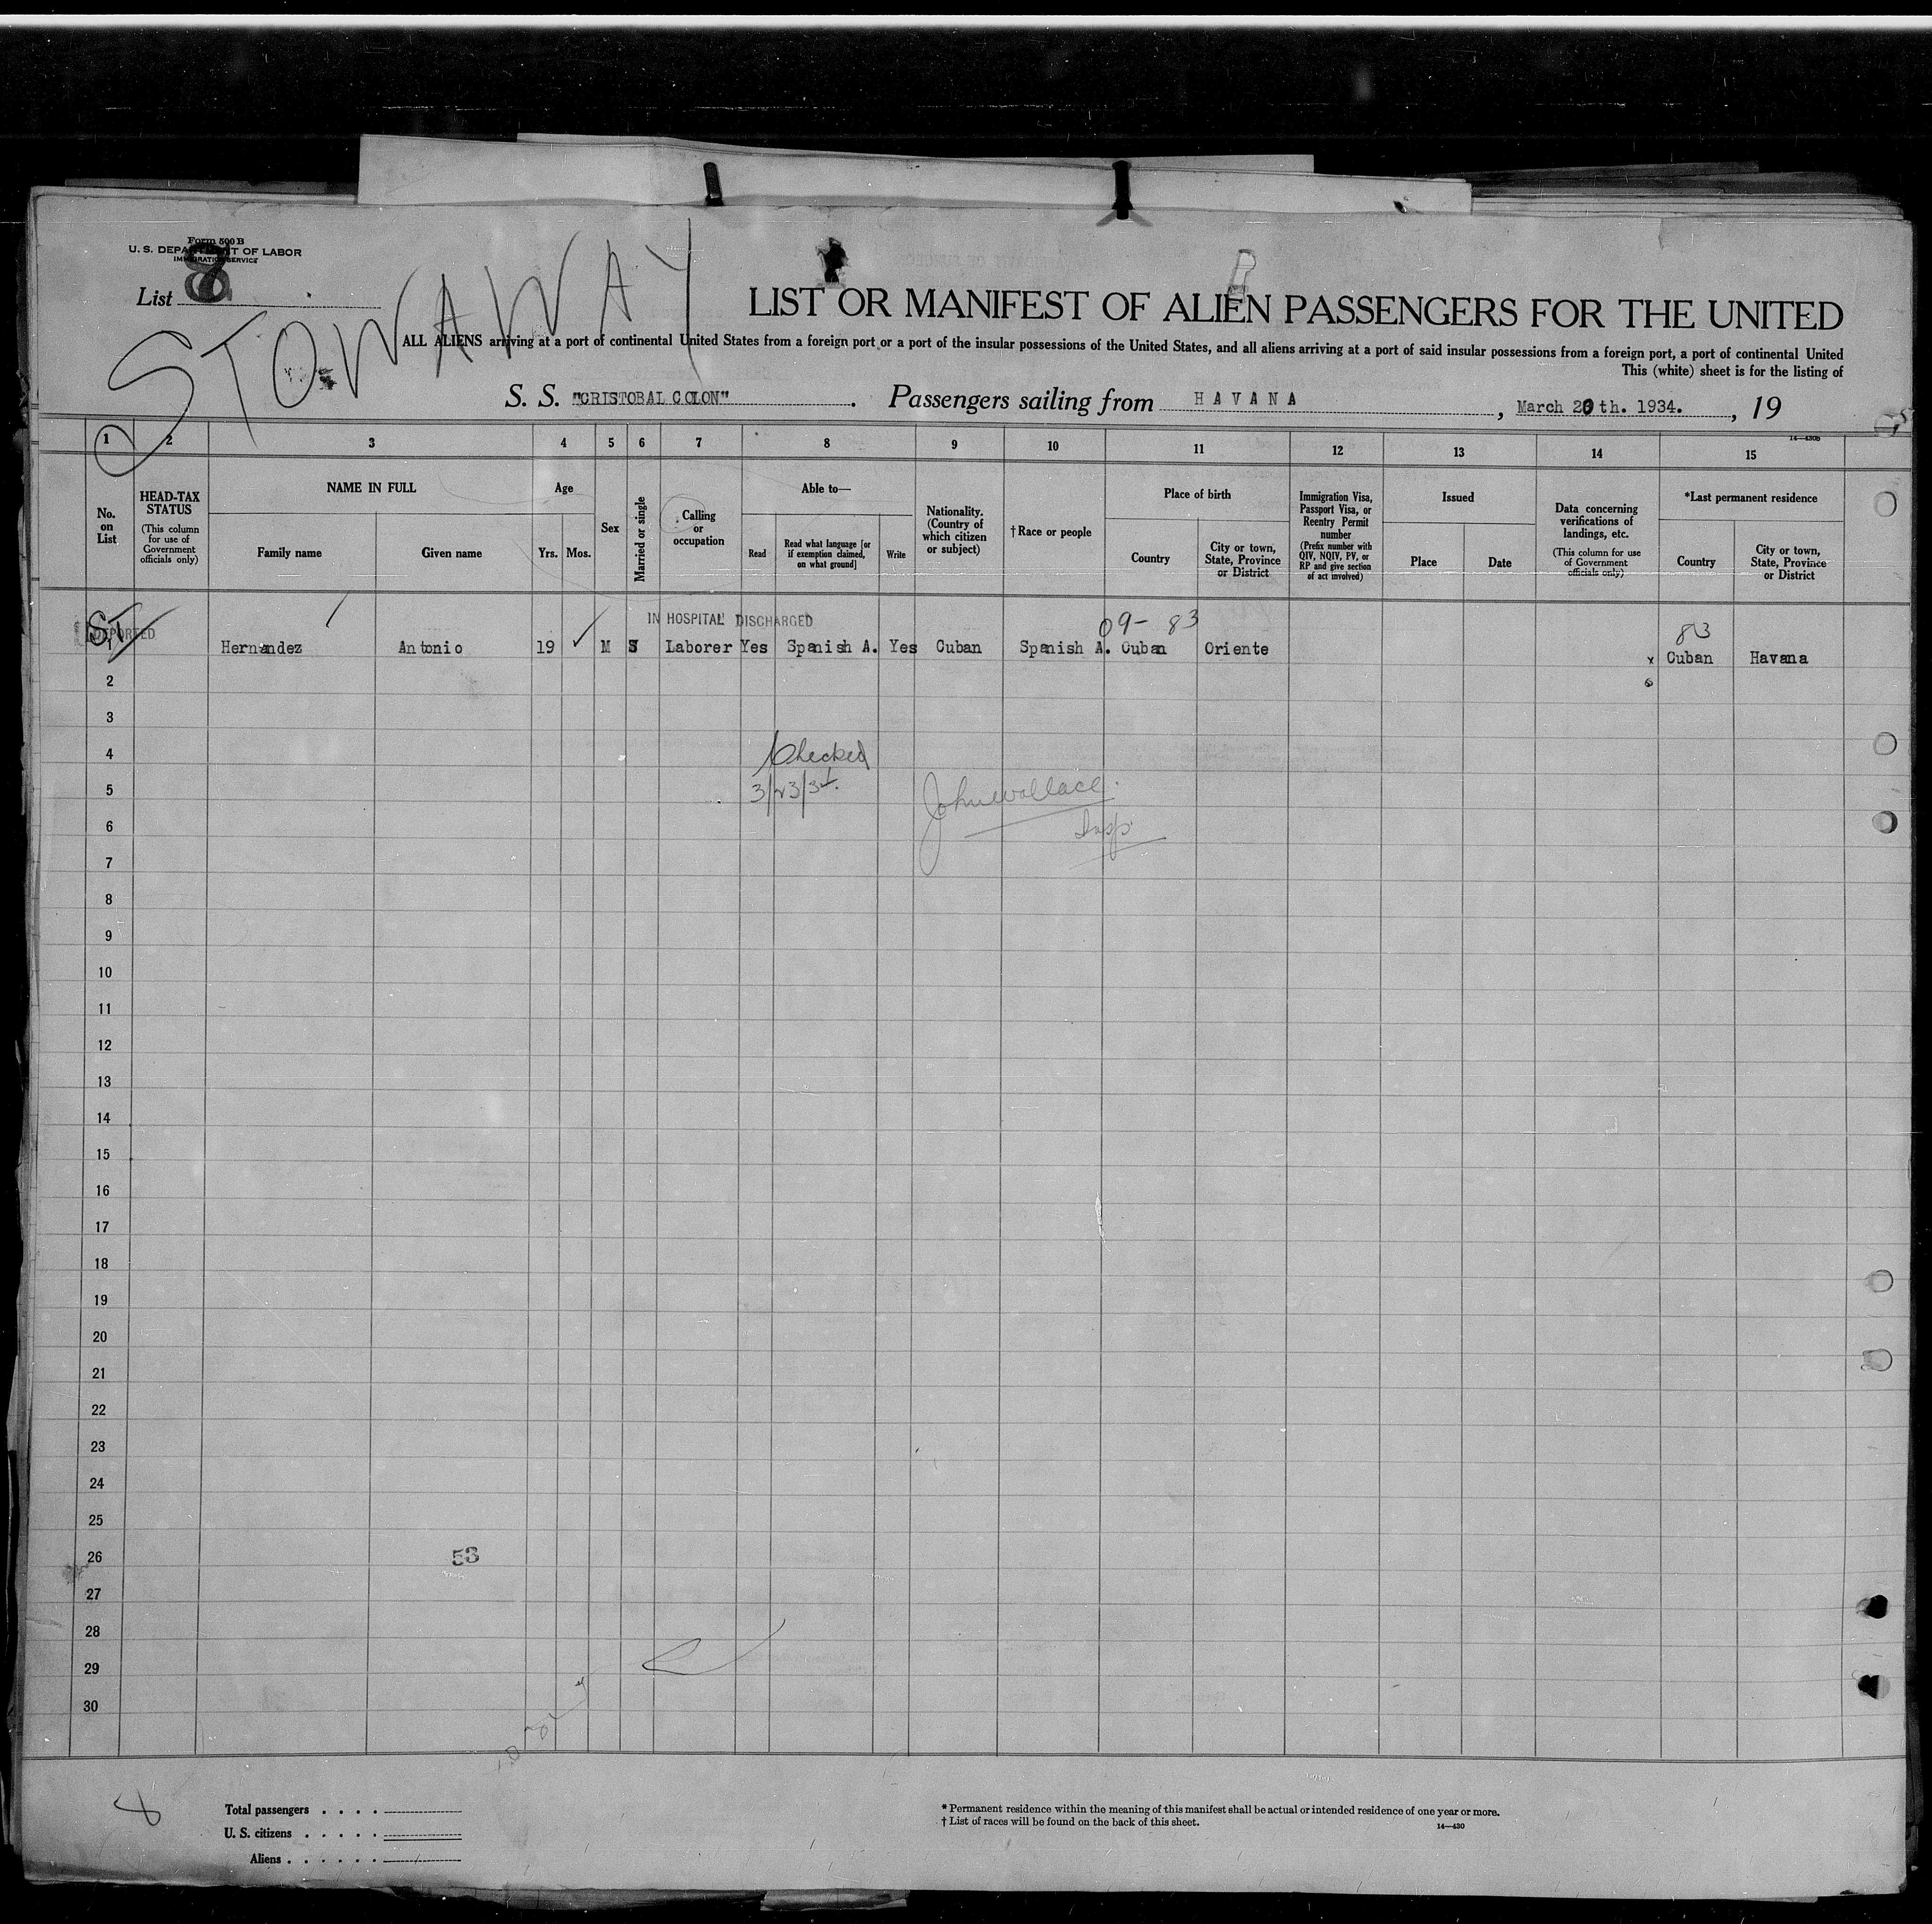 Form 500 B
U. S. DEPARTMENT OF LABOR
IMMIGRATION SERVICE
List 8
STOWAWAY
LIST OR MANIFEST OF ALIEN PASSENGERS FOR THE UNITED
ALL ALIENS arriving at a port of continental United States from a foreign port or a port of the insular possessions of the United States, and all aliens arriving at a port of said insular possessions from a foreign port, a port of continental United
This (white) sheet is for the listing of
S. S. "CRISTOBAL COLON" . Passengers sailing from HAVANA , March 20th. 1934. , 19
14—430b
1 2 3 4 5 6 7 8 9 10 11 12 13 14 15
No. on List
HEAD-TAX STATUS
(This column for use of Government officials only)
NAME IN FULL
Family name
Given name
Age
Yrs.
Mos.
Sex
Married or single
Calling or occupation
Able to—
Read
Read what language [or if exemption claimed, on what ground]
Write
Nationality. (Country of which citizen or subject)
† Race or people
Place of birth
Country
City or town, State, Province or District
Immigration Visa, Passport Visa, or Reentry Permit number
(Prefix number with QIV, NQIV, PV, or RP and give section of act involved)
Issued
Place
Date
Data concerning verifications of landings, etc.
(This column for use of Government officials only)
*Last permanent residence
Country
City or town, State, Province or District
ST
DEPORTED
IN HOSPITAL DISCHARGED
09- 83
83
1 Hernandez Antonio 19 ✓ M S Laborer Yes Spanish A. Yes Cuban Spanish A. Cuban Oriente x Cuban Havana
2
3
4
Checked
5
3/23/34.
John Wallace.
6
Insp.
7
8
9
10
11
12
13
14
15
16
17
18
19
20
21
22
23
24
25
26
53
27
28
29
30
8
Total passengers . . . .
U. S. citizens . . . . .
Aliens . . . . . .
* Permanent residence within the meaning of this manifest shall be actual or intended residence of one year or more.
† List of races will be found on the back of this sheet.
14—430